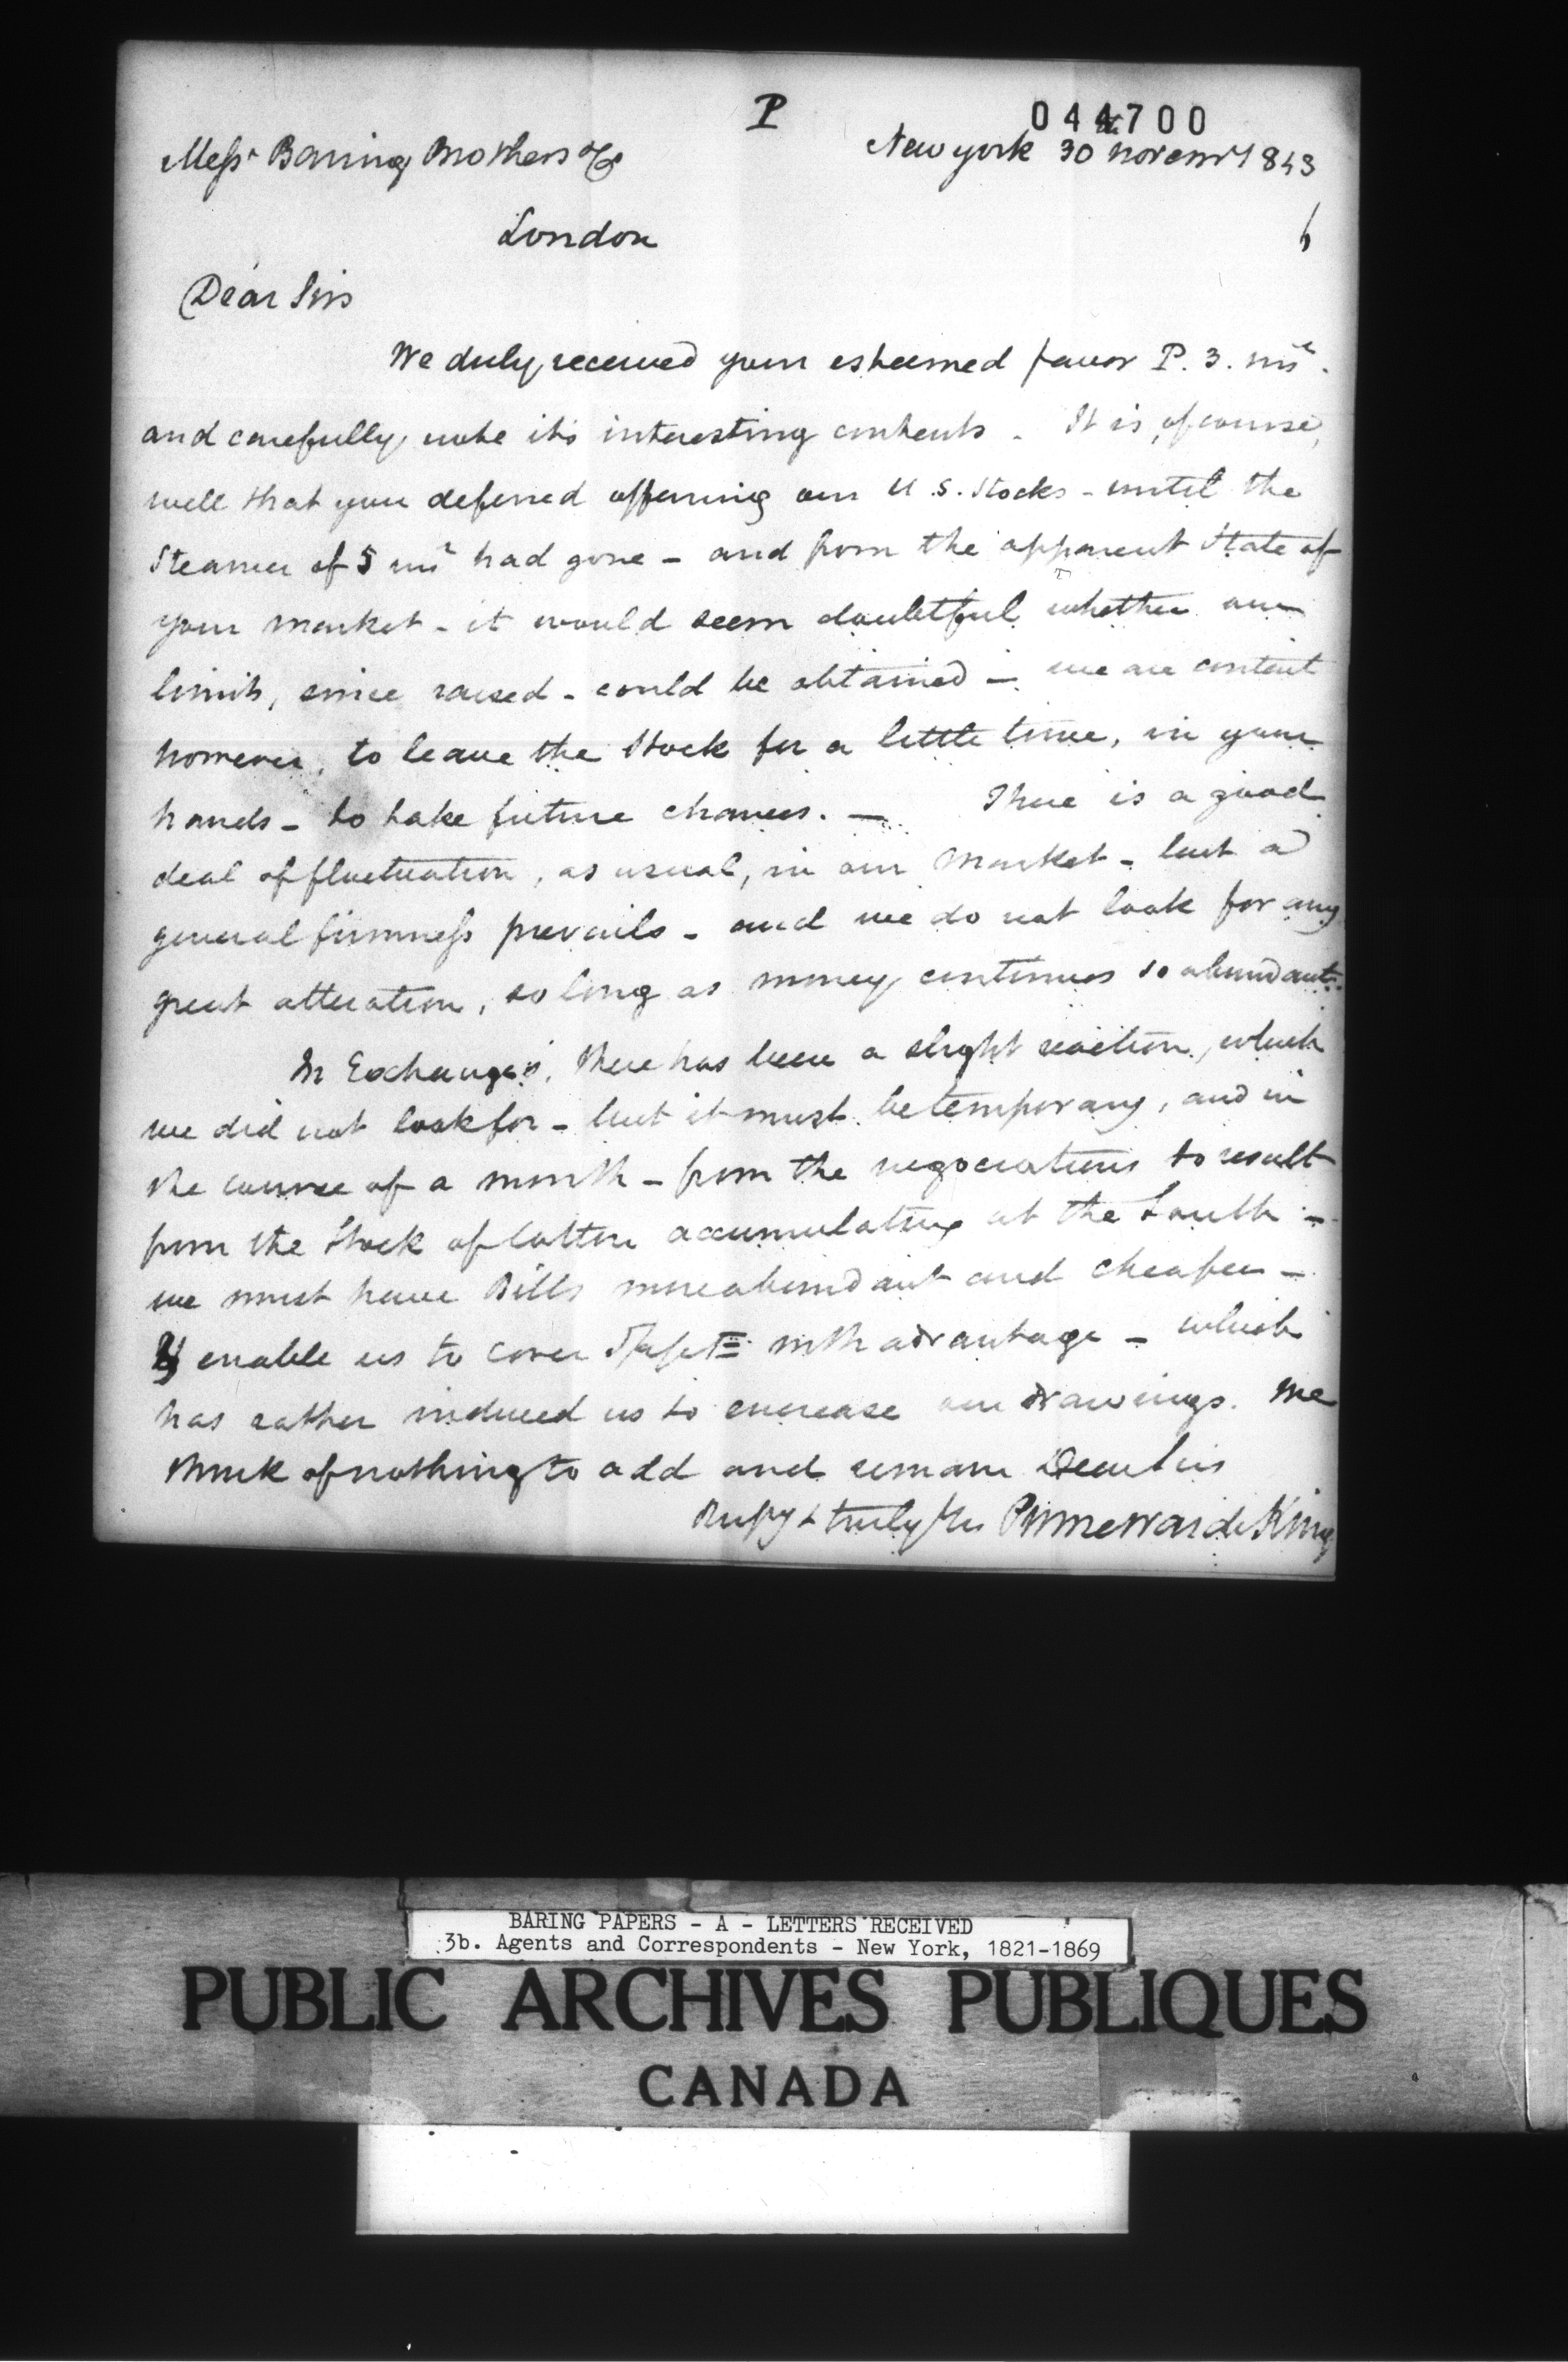 P
044700
Messrs Baring Brothers & Co
New york 30 novemr 1843
London
Dear Sirs
We duly received your esteemed favor P. 3. inst.
and carefully note it's interesting contents. It is, of course,
well that you deferred offering our U.S. Stocks - until the
Steamer of 5 inst had gone - and from the apparent State of
your market - it would seem doubtful whether our
limits, since raised - could be obtained - we are content
however, to leave the Stock for a little time, in your
hands - to take future chances. - There is a good
deal of fluctuation, as usual, in our Market - but a
general firmness prevails - and we do not look for any
great alteration, so long as money continues so abundant.
In Exchanges, there has been a slight reaction, which
we did not look for - but it must be temporary, and in
the course of a month - from the negociations to result
from the Stock of Cotton accumulating at the South -
we must have Bills more abundant and cheaper -
enable us to cover with advantage - which
has rather induced us to encrease our drawings. We
think of nothing to add and remain Dear Sirs
truly Yrs Prime Ward & King
BARING PAPERS - A - LETTERS RECEIVED
3b. Agents and Correspondents - New York, 1821-1869
PUBLIC ARCHIVES PUBLIQUES
CANADA